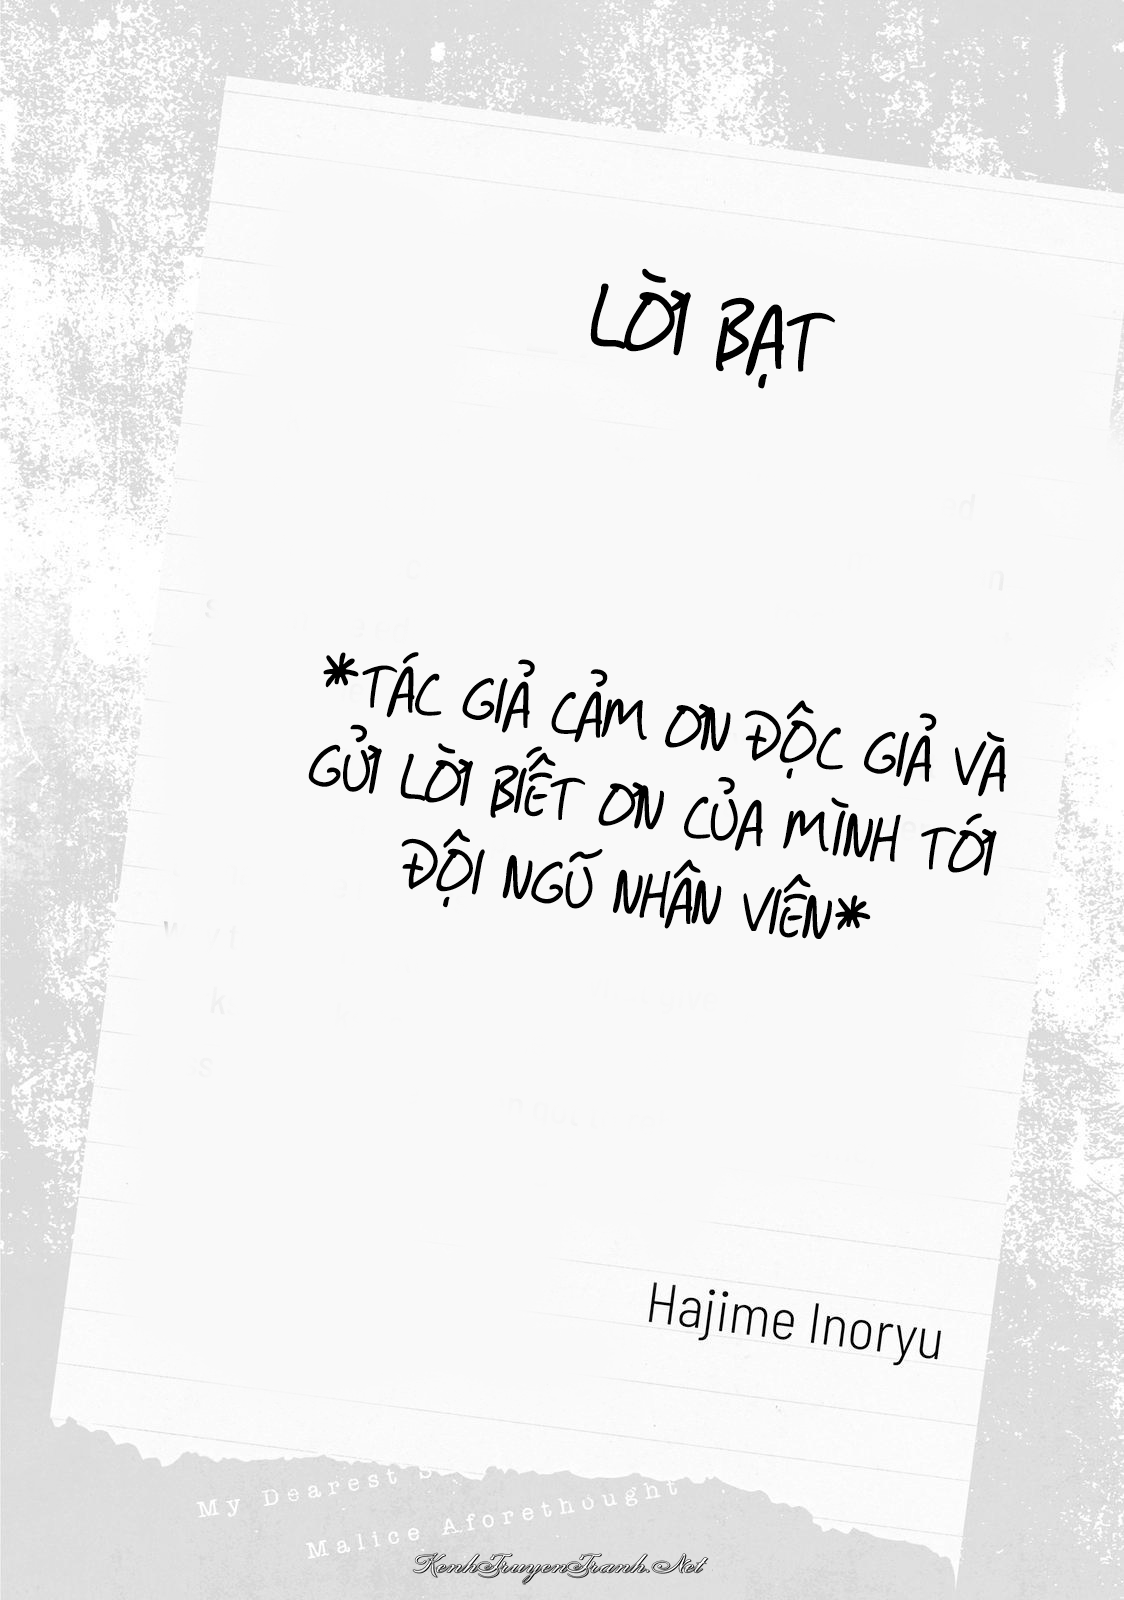 LỜI BẠT
*TÁC GIẢ CẢM ƠN ĐỘC GIẢ VÀ
GỬI LỜI BIẾT ƠN CỦA MÌNH TỚI
ĐỘI NGŨ NHÂN VIÊN*
Hajime Inoryu
My Dearest
Malice Aforethought
KenhTruyenTranh.Net